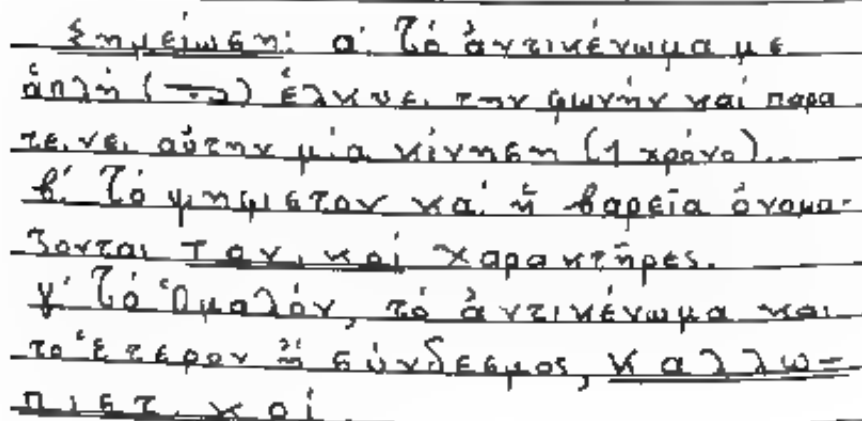 Σημείωση: α΄. Τό ἀντικένωμα με
ἁπλή ( ) ἑλκύει την φωνήν καί παρα
τείνει αὐτην μία κίνηση (1 χρόνο)...
β΄. Τό ψηφιστον καί ἡ βαρεῖα ὀνομα-
ζονται τονικοί χαρακτῆρες.
γ΄ Τό Ὁμαλόν, τό ἀντικένωμα και
το Ἑτερον ἤ σύνδεσμος, καλλω-
πιστικοί